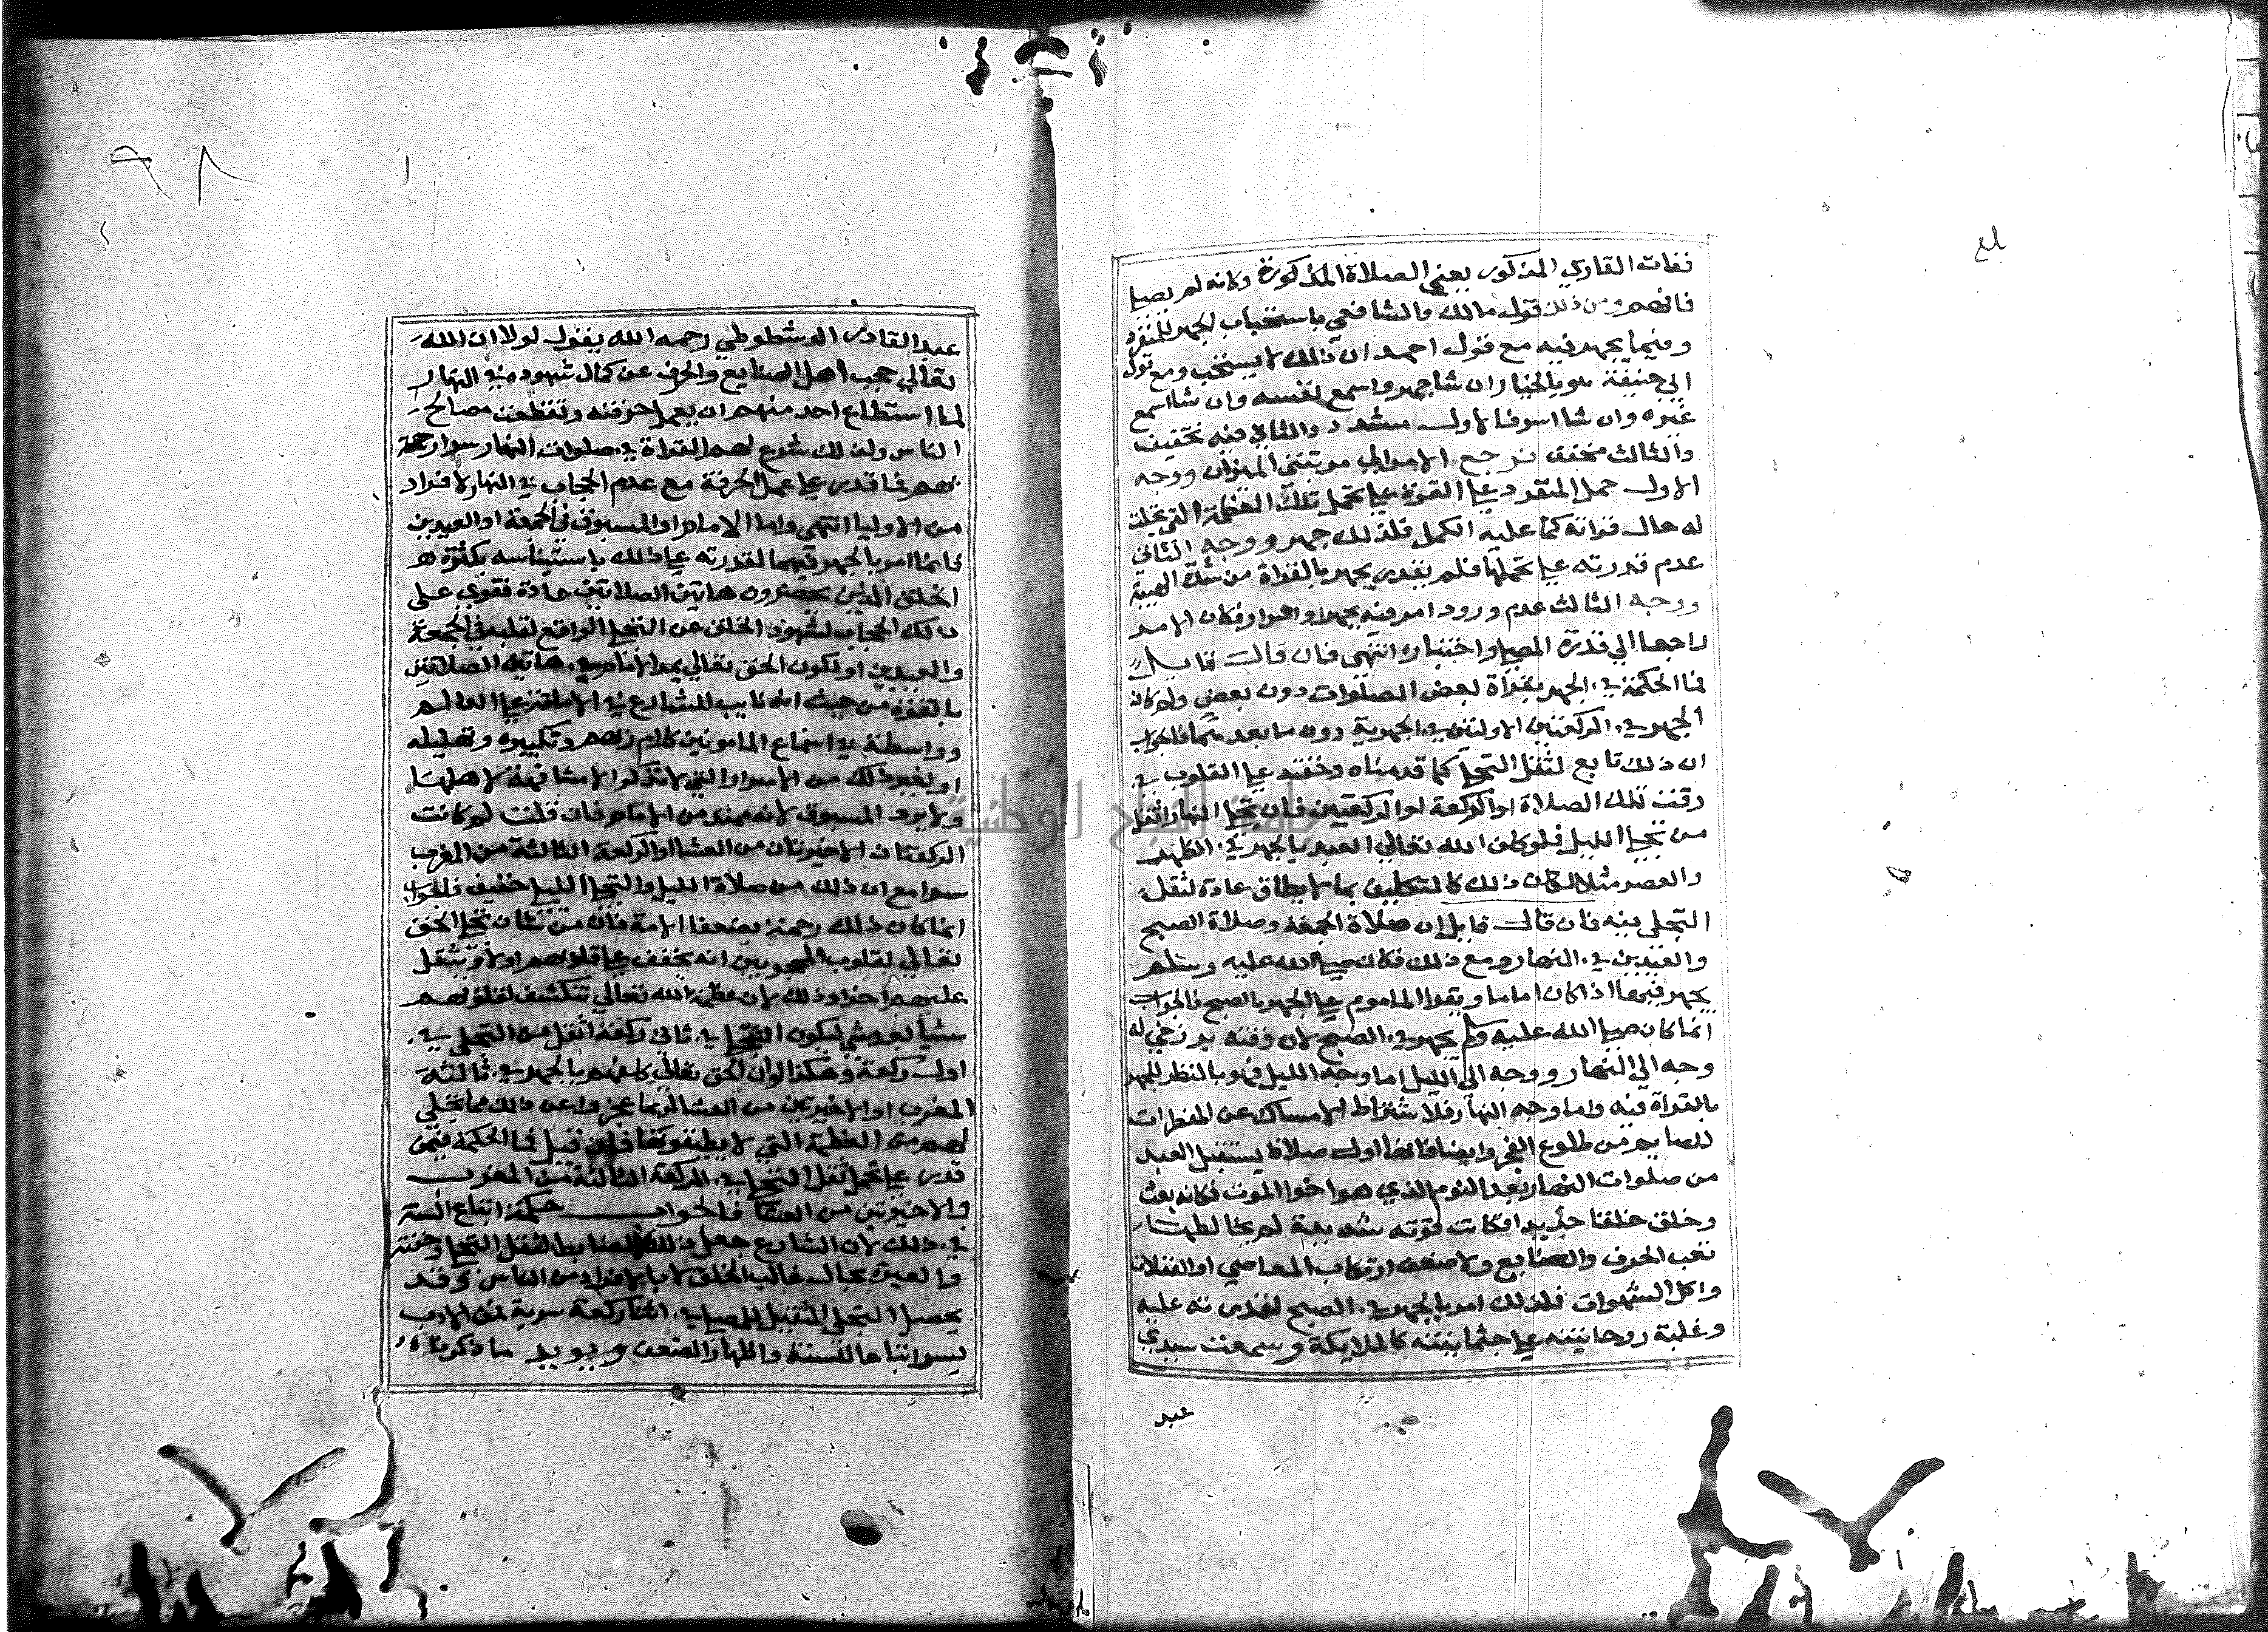 نفات القاري المذكور بعني الصلاة المذكورة وكانه لم يصل
فافهم ومن ذلك قول مالك والشافعي باستحباب الجهر للمنفرد
وفيما يجهر فيه مع قول احمد ان ذلك لا يستحب ومع قول
ابي حنيفة هو بالخيار ان شا جهر واسمع نفسه وان شا اسمع
غيره وان شا اسر فالاول مشدد والثاني فيه تخفيف
والثالث مخفف فرجع الامر الي مرتبتي الميزان ووجه
الاول حمل المنفرد علي القوة علي تحمل تلك العظمة التي تجلت
له حال قراته كما عليه الكمل فلذلك جهر ووجه الثاني
عدم قدرته علي تحملها فلم يقدر يجهر بالقراة من شدة الهيبة
ووجه الثالث عدم ورود امر فيه بجهر او اسرار فكان الامر
راجعا الي قدرة المصلي واختياره انتهي فان قال قايل
فما الحكمة في الجهر بقراة بعض الصلوات دون بعض ولم كان
الجهر في الركعتين الاولتين في الجهرية دون ما بعدهما فالجواب
ان ذلك تابع لثقل التجلي كما قدمناه وخفته علي القلوب في
وقت تلك الصلاة او الركعة او الركعتين فان تجلي النهار اثقل
من تجلي الليل فلو كلف الله تعالي العبد بالجهر في الظهر
والعصر مثلا لكان ذلك كالتكليف بما لا يطاق عادة لثقل
التجلي فيه فان قال قايل ان صلاة الجمعة وصلاة الصبح
والعيدين في النهار ومع ذلك فكان صلي الله عليه وسلم
يجهر فيها اذا كان اماما ويقر الماموم علي الجهر بالصبح فالجواب
انما كان صلي الله عليه وسلم يجهر في الصبح لان وقته برزخي له
وجه الي النهار ووجه الي الليل اما وجه الليل فهو بالنظر للجهر
بالقراة فيه واما وجه النهار فلاشتراط الامساك عن المفطرات
للصايم من طلوع الفجر وايضا فانها اول صلاة يستقبل العبد
من صلوات النهار بعد النوم الذي هو اخو الموت فكانه بعث
وخلق خلقا جديدا فكانت قوته شديدة لم يخالطها
تعب الحرف والصنايع ولا ضعف ارتكاب المعاصي او الغفلات
واكل الشهوات فلذلك امر بالجهر في الصبح لقدرته عليه
وغلبة روحانيته علي جثمانيته كالملايكة وسمعت سيدي
عبد
بلغ
٩٨
عبد القادر الدشطوطي رحمه الله يقول لولا ان الله
تعالي حجب اهل الصنايع والحرف عن كمال شهوده في النهار
لما استطاع احد منهم ان يعمل حرفته وتعطلت مصالح
الناس ولذلك شرع لهم القراة في صلوات النهار سرا رحمة
بهم فما قدر علي عمل الحرفة مع عدم الحجاب في النهار الا افراد
من الاوليا انتهي واما الامام او المسبوق في الجمعة او العيدين
فانما امر بالجهر فيهما لقدرته علي ذلك باستيناسه بكثرة
الخلق الذين يحضرون هاتين الصلاتين عادة فقوي علي
ذلك الحجاب لشهود الخلق عن التجلي الواقع لقلبه في الجمعة
والعيدين او لكون الحق تعالي يمد الامام في هاتين الصلاتين
بالقوة من حيث انه نايب للشارع في الامامة علي العالم
وواسطة في اسماع المامومين كلام ربهم وتكبيره وتهليله
او لغير ذلك من الاسرار التي لا تذكر الا مشافهة لاهلها
ولا يرد المسبوق لانه ممد من الامام فان قلت لم كانت
الركعتان الاخيرتان من العشا او الركعة الثالثة من المغرب
سرا مع ان ذلك من صلاة الليل والتجلي الليل خفيف فالجواب
انما كان ذلك رحمة بضعفا الامة فان من شان تجلي الحق
تعالي لقلوب المحجوبين انه يخفف علي قلوبهم اولا ويثقل
عليهم اخرا وذلك لان عظمة الله تعالي تنكشف لقلوبهم
شيا بعد شي ليكون التجلي في ثاني ركعة اثقل من التجلي في
اول ركعة وهكذا لو ان الحق تعالي كلفهم بالجهر في ثالثة
المغرب او الاخيرتين من العشا لربما عجزوا عن ذلك مما تجلي
لهم من العظمة التي لا يطيقونها فان قيل فما الحكمة فيمن
قدر علي تحمل ثقل التجلي في الركعة الثالثة من المغرب
والاخيرتين من العشا فالجواب حكمته اتباع السنة
في ذلك لان الشارع جعل ذلك الضابط لثقل التجلي وخفته
والعبرة بحال غالب الخلق لا بالافراد من الناس وقد
يحصل التجلي الثقيل للمصلي في اثنا ركعة سرية فمن الادب
ليسر اتباعا للسنة واظهارا لضعف ويويد ما ذكرناه
جامعة النجاح الوطنية